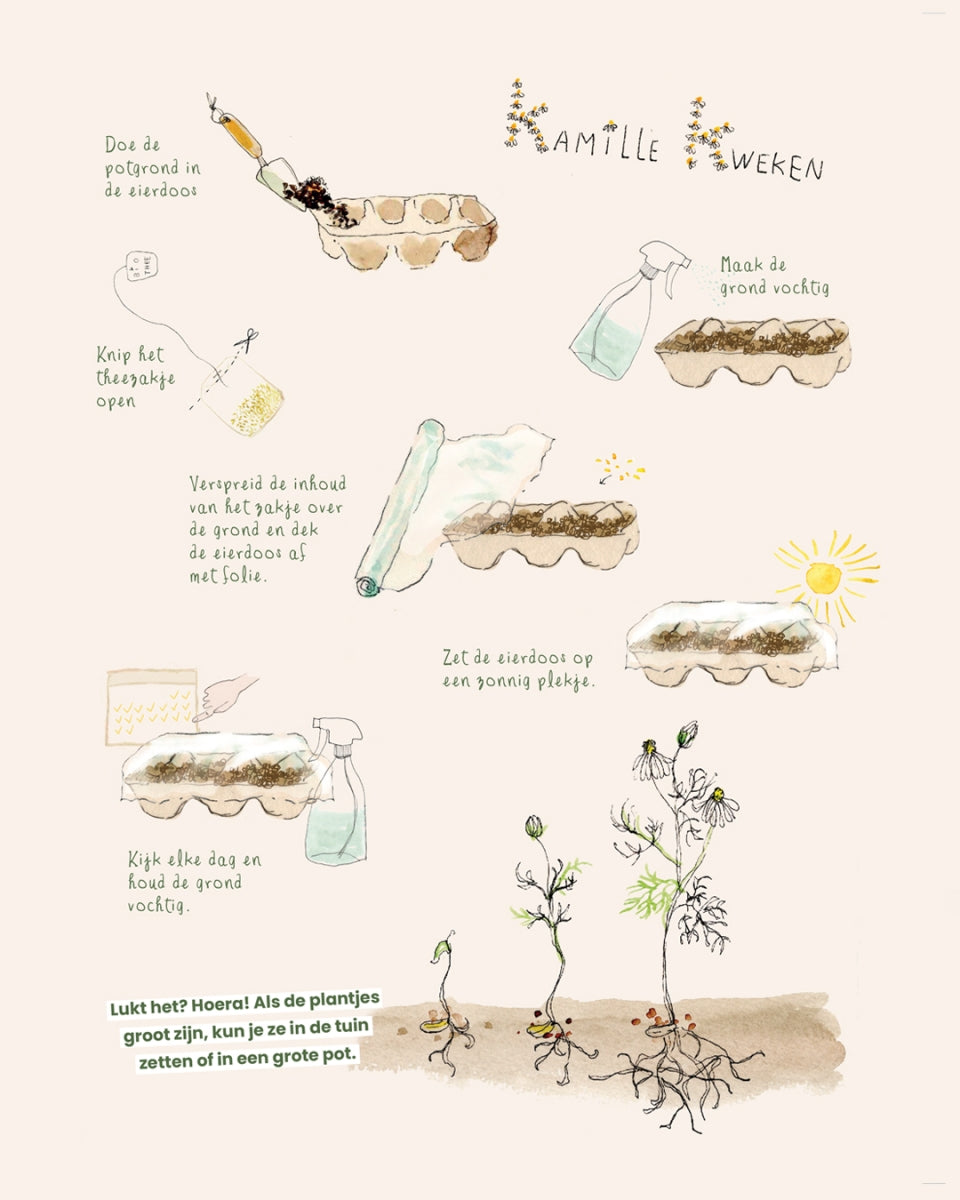 KAMILLE KWEKEN
Doe de
potgrond in
de eierdoos
Maak de
grond vochtig
BIO
THEE
Knip het
theezakje
open
Verspreid de inhoud
van het zakje over
de grond en dek
de eierdoos af
met folie.
Zet de eierdoos op
een zonnig plekje.
Kijk elke dag en
houd de grond
vochtig.
Lukt het? Hoera! Als de plantjes
groot zijn, kun je ze in de tuin
zetten of in een grote pot.